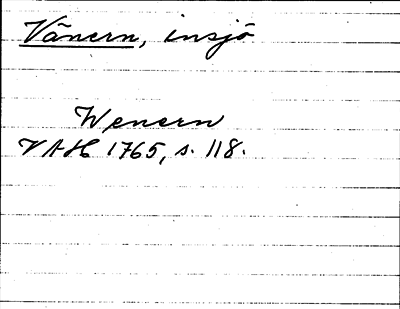 Vänern, insjö
Wenern
VAH 1765, s. 118.